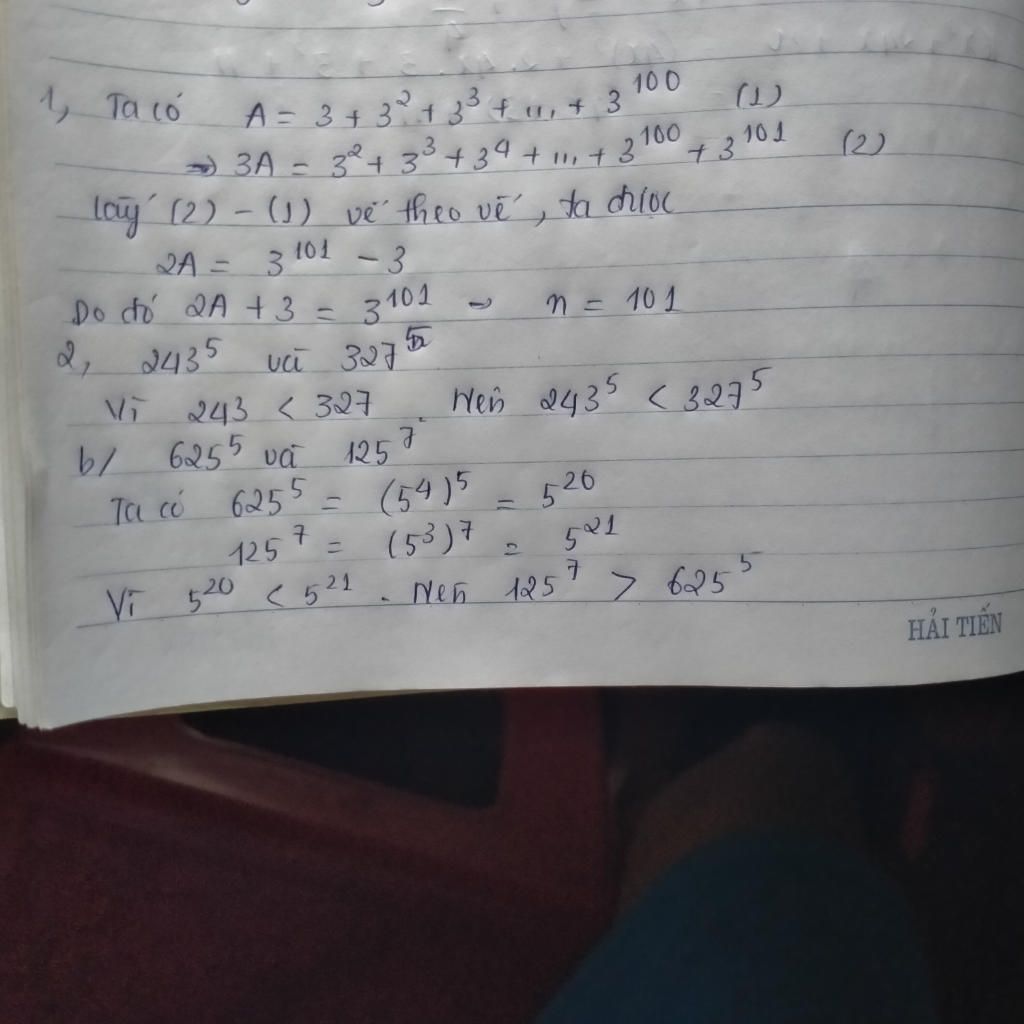 1, Ta có A = 3 + 3² + 3³ + ... + 3¹⁰⁰ (1)
⇒ 3A = 3² + 3³ + 3⁴ + ... + 3¹⁰⁰ + 3¹⁰¹ (2)
lấy (2) - (1) vế theo vế, ta được
2A = 3¹⁰¹ - 3
Do đó 2A + 3 = 3¹⁰¹ → n = 101
2, 243⁵ và 327⁵
Vì 243 < 327. Nên 243⁵ < 327⁵
b/ 625⁵ và 125⁷
Ta có 625⁵ = (5⁴)⁵ = 5²⁰
125⁷ = (5³)⁷ = 5²¹
Vì 5²⁰ < 5²¹. Nên 125⁷ > 625⁵
HẢI TIẾN